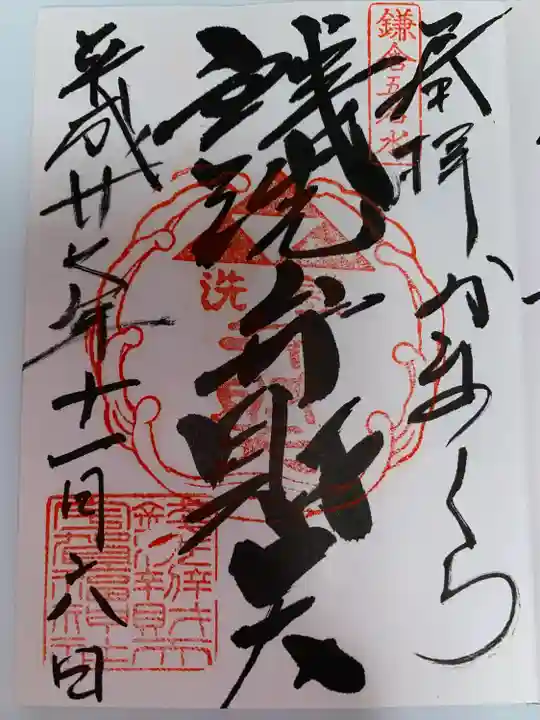 奉拝 かまくら
鎌倉五名水
銭洗弁財天
洗
平成廿七年十一月六日